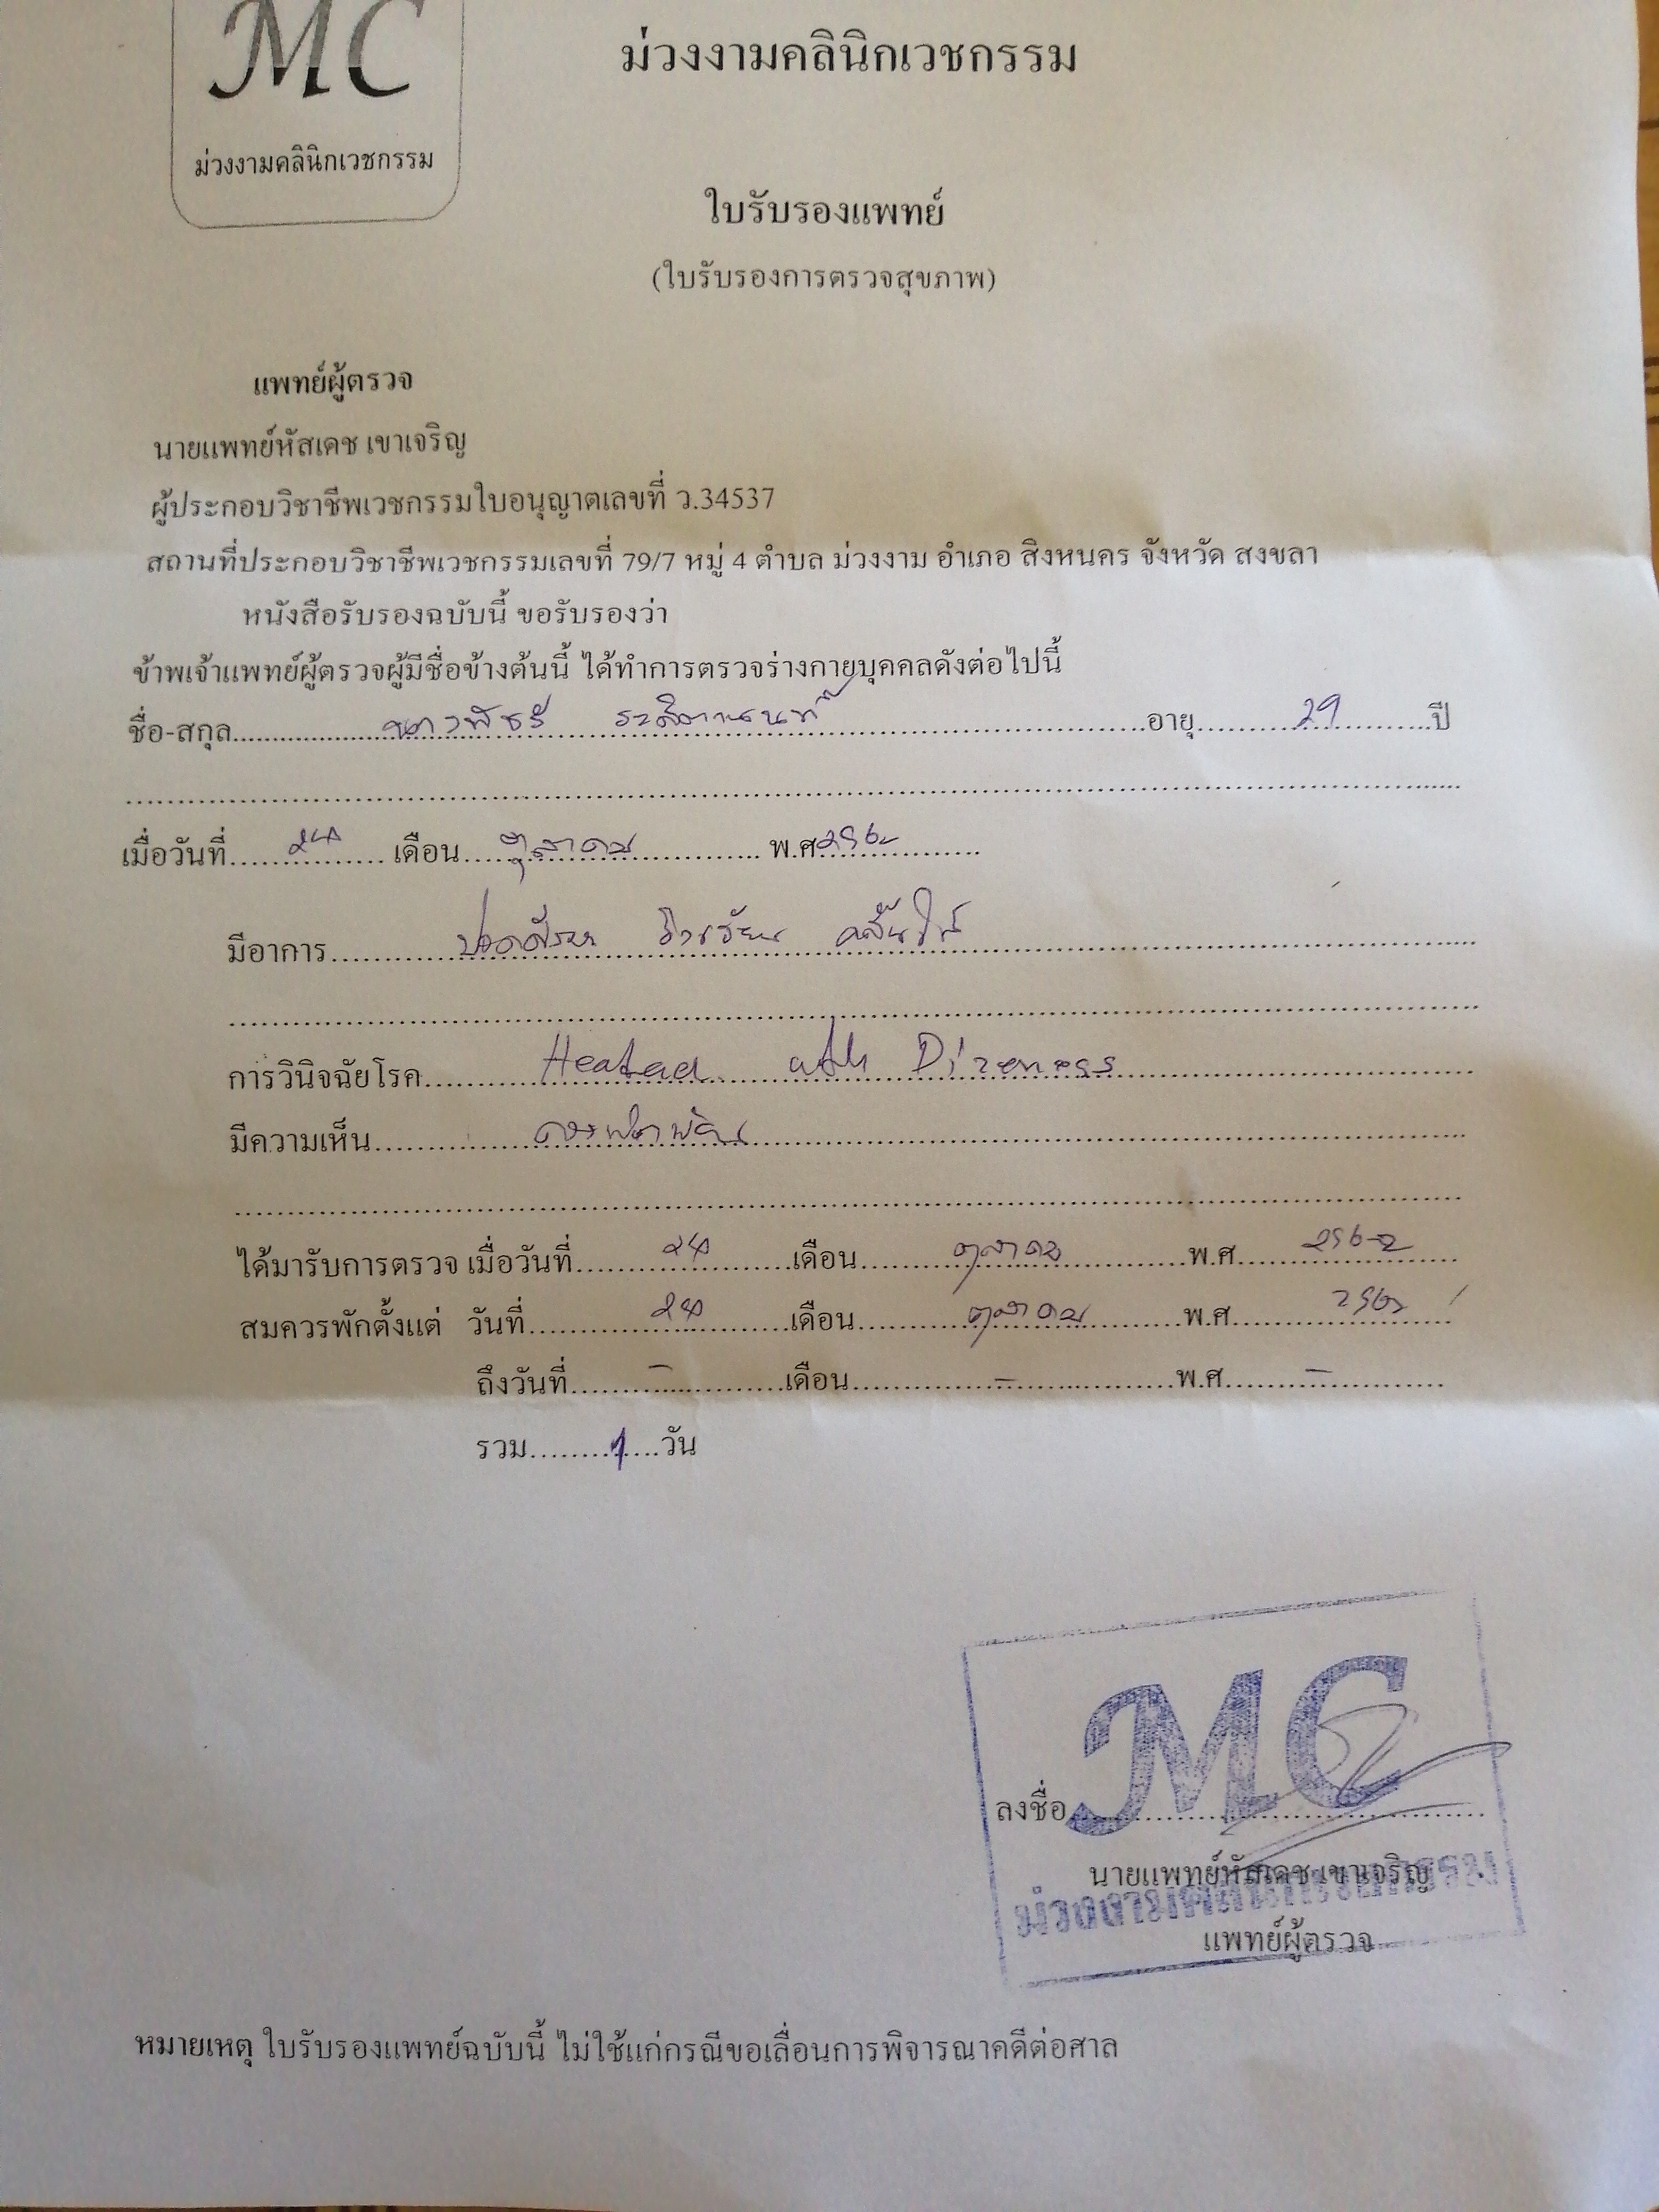 MC
ม่วงงามคลินิกเวชกรรม
ม่วงงามคลินิกเวชกรรม
ใบรับรองแพทย์
(ใบรับรองการตรวจสุขภาพ)
แพทย์ผู้ตรวจ
นายแพทย์หัสเดช เขาเจริญ
ผู้ประกอบวิชาชีพเวชกรรมใบอนุญาตเลขที่ ว.34537
สถานที่ประกอบวิชาชีพเวชกรรมเลขที่ 79/7 หมู่ 4 ตำบล ม่วงงาม อำเภอ สิงหนคร จังหวัด สงขลา
หนังสือรับรองฉบับนี้ ขอรับรองว่า
ข้าพเจ้าแพทย์ผู้ตรวจผู้มีชื่อข้างต้นนี้ ได้ทำการตรวจร่างกายบุคคลดังต่อไปนี้
ชื่อ-สกุล อายุ 29 ปี
เมื่อวันที่ 24 เดือน ตุลาคม พ.ศ
มีอาการ ปวดศีรษะ วิงเวียน คลื่นไส้
การวินิจฉัยโรค
มีความเห็น ควรพักฟื้น
ได้มารับการตรวจ เมื่อวันที่ 24 เดือน ตุลาคม พ.ศ. 2562
สมควรพักตั้งแต่ วันที่ 24 เดือน ตุลาคม พ.ศ. 2562
ถึงวันที่ - เดือน - พ.ศ. -
รวม 1 วัน
MC
ลงชื่อ
นายแพทย์หัสเดช เขาเจริญ
ม่วงงามคลินิกเวชกรรม
แพทย์ผู้ตรวจ
หมายเหตุ ใบรับรองแพทย์ฉบับนี้ ไม่ใช้แก่กรณีขอเลื่อนการพิจารณาคดีต่อศาล